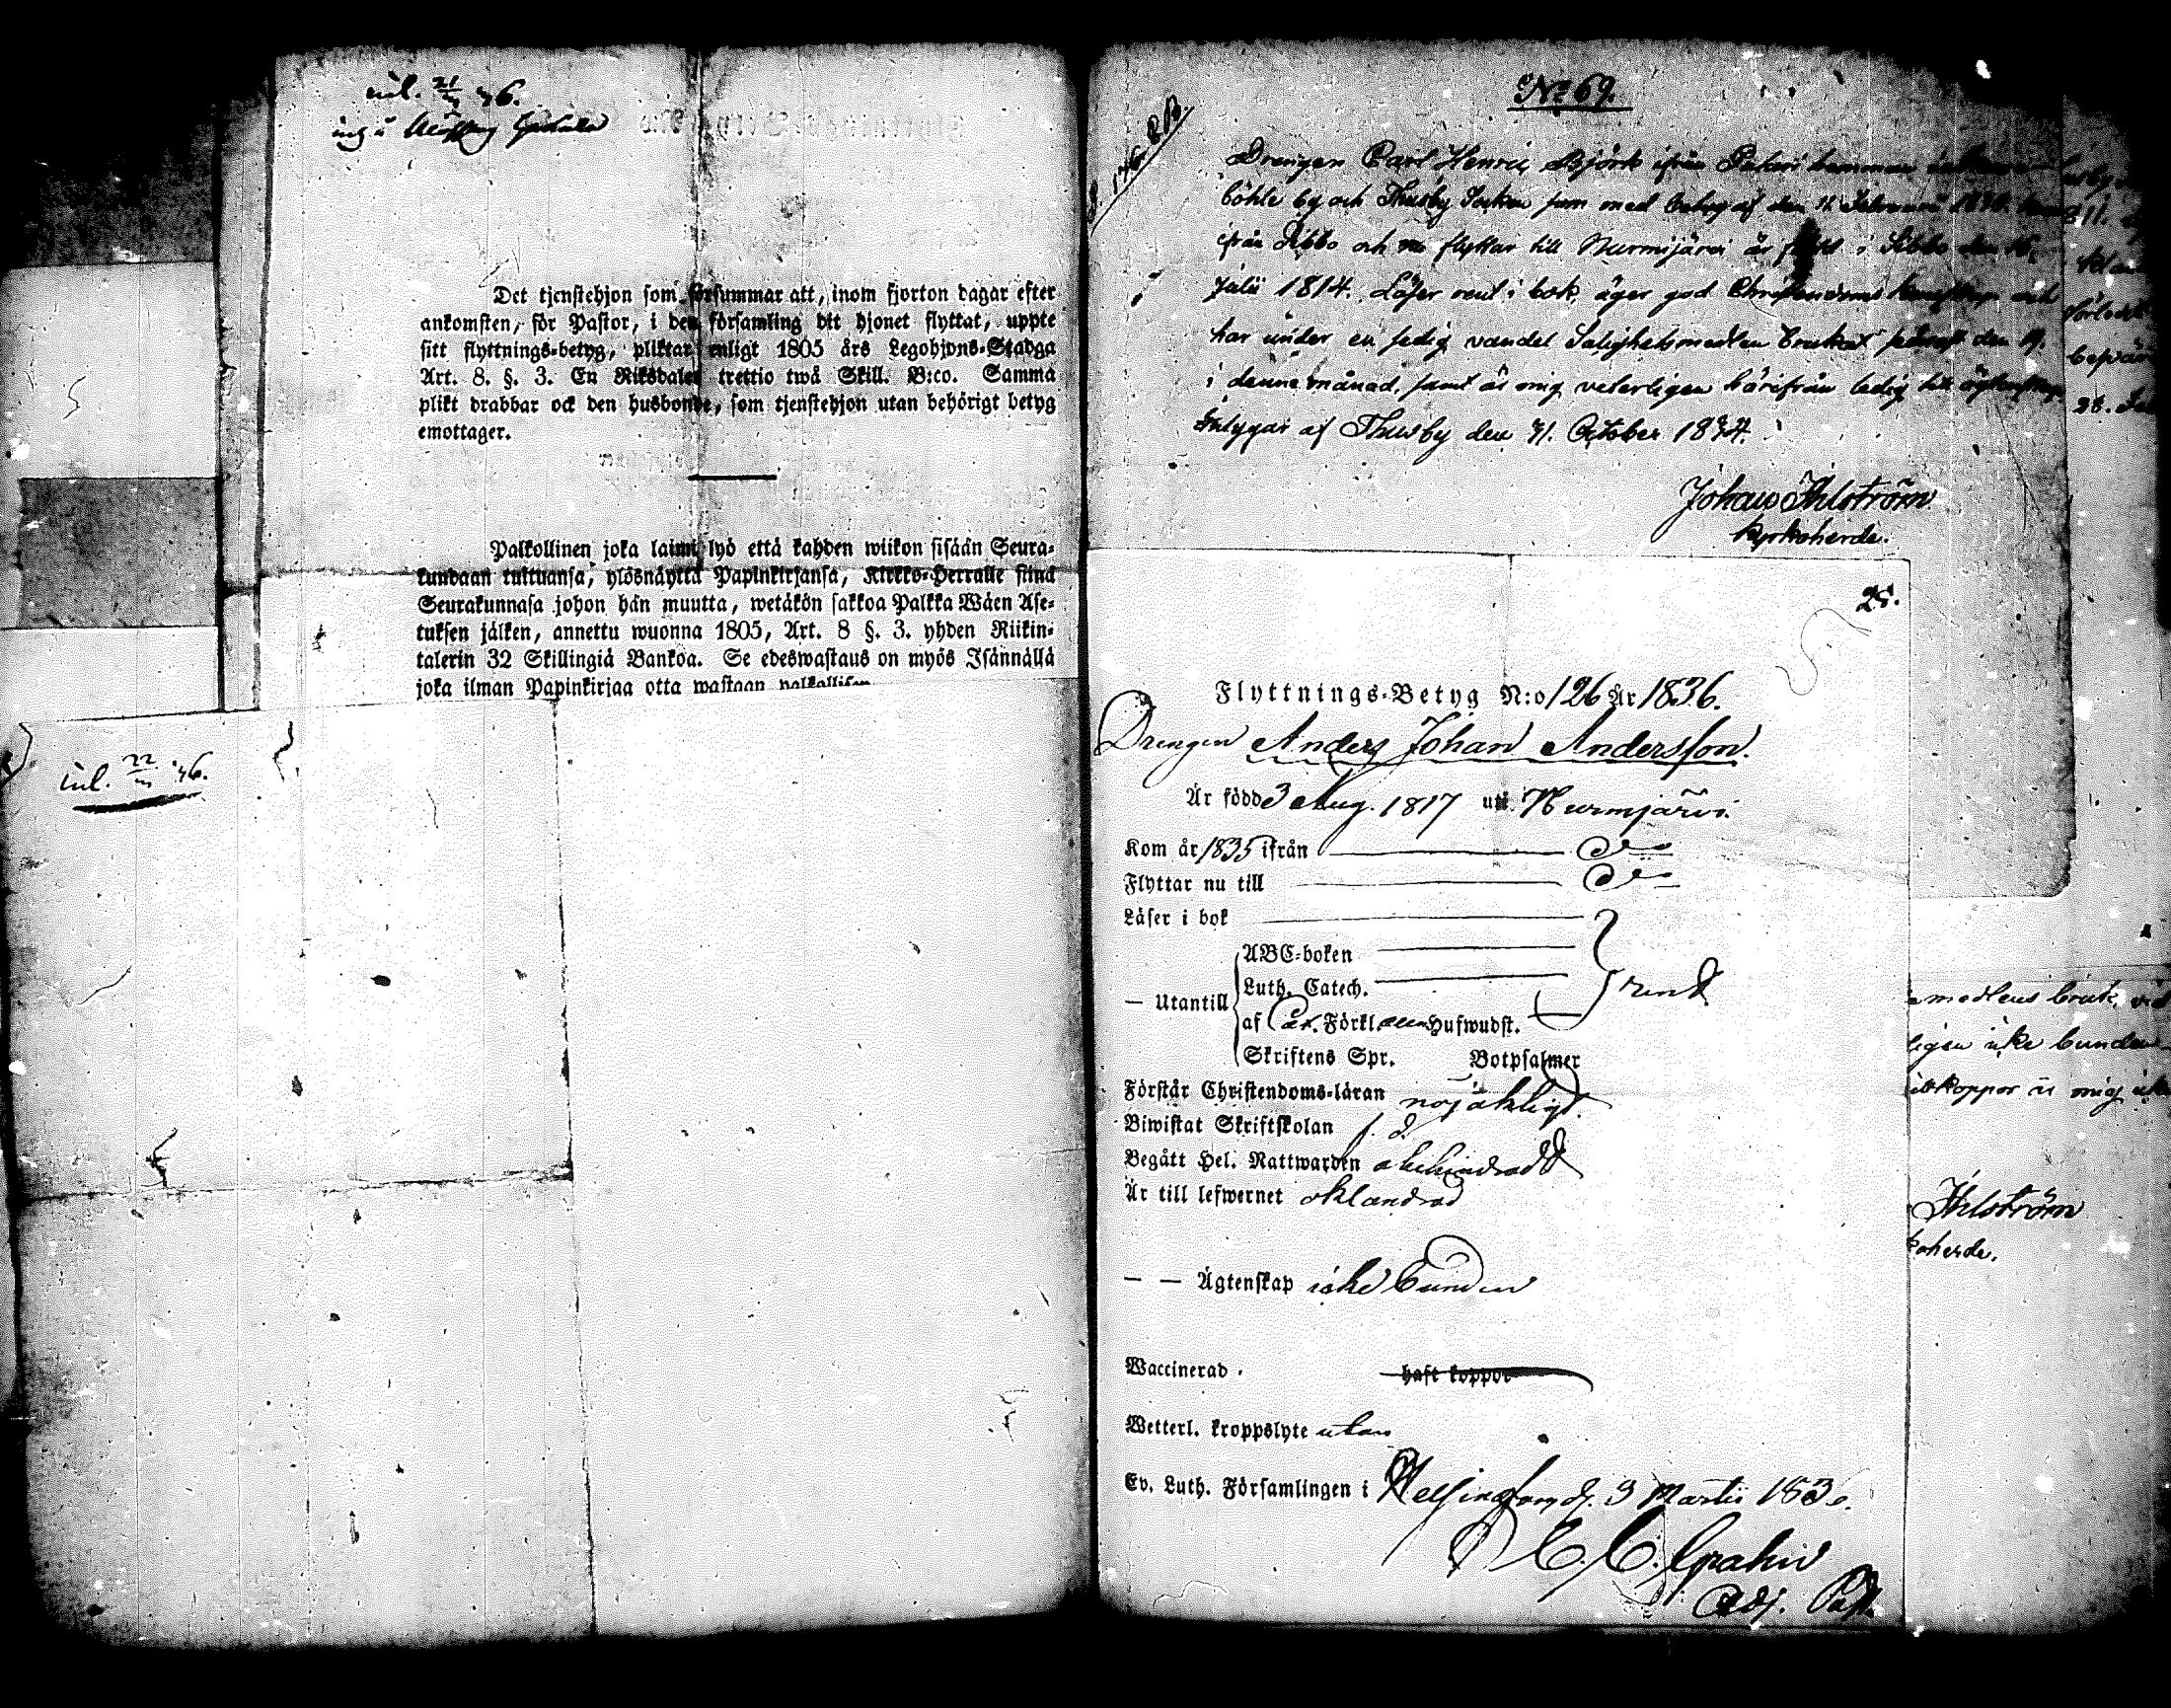 inl. 21/3 36.
Det tjenstehjon som försummar att, inom fjorton dagar efter
ankomsten, för Pastor, i den församling dit hjonet flyttat, uppte
sitt flyttnings-betyg, pliktar enligt 1805 års Legohjons-Stadga
Art. 8. §. 3. En Riksdaler trettio twå Skill. B:co. Samma
plikt drabbar ock den husbonde, som tjenstehjon utan behörigt betyg
emottager.
Palkollinen joka laimi lyö että kahden wiikon sisään Seura-
kundaan tultuansa, ylösnäyttä Papinkirjansa, Kirkko-Herralle siinä
Seurakunnasa johon hän muutta, wetäkön sakkoa Palkka Wäen Ase-
tuksen jälken, annettu wuonna 1805, Art. 8 §. 3. yhden Riikin-
talerin 32 Skillingiä Bankoa. Se edeswastaus on myös Isännällä
joka ilman Papinkirjaa otta wastaan palkollisen
inl. 22/3 36.
No 69.
Drengen Carl Henric Björk ifrån
böhle by och Thusby Socken som med betyg af den 11 Februarii
ifrån Sibbo och nu flyttar till Nurmijärvi är född i Sibbo den 16.
Julii 1814. Läser rent i bok, äger god Christendoms kunskap och
har under en sedig vandel Salighetsmedlen brukat sednast den 19.
i denne månad, samt är mig veterligen härifrån ledig till ägtenskap.
Intygar af Thusby den 31. October 1834.
Johan Ihlström
Kyrkoherde.
25.
Flyttnings-Betyg N:o 126 År 1836.
Drengen Anders Johan Andersson.
Är född 3 Aug. 1817 uti Nurmjärvi.
Kom år 1835 ifrån do
Flyttar nu till do
Läser i bok
ABC-boken
Luth. Catech.
— Utantill
af Förkl. Hufwudst.
Skriftens Spr. Botpsalmer
Förstår Christendoms-läran nöjaktligt.
Biwistat Skriftskolan
Begått Hel. Nattwarden obehindradt
Är till lefwernet oklandrad
— — Ägtenskap icke bunden
Waccinerad . haft koppor
Wetterl. kroppslyte utan
Ev. Luth. Församlingen i Helsingfors d. 3 Martii 1836.
Adj. Past.
medlens bruk, vid
ligen icke bunden
koppor är mig icke
Ihlström
koherde.